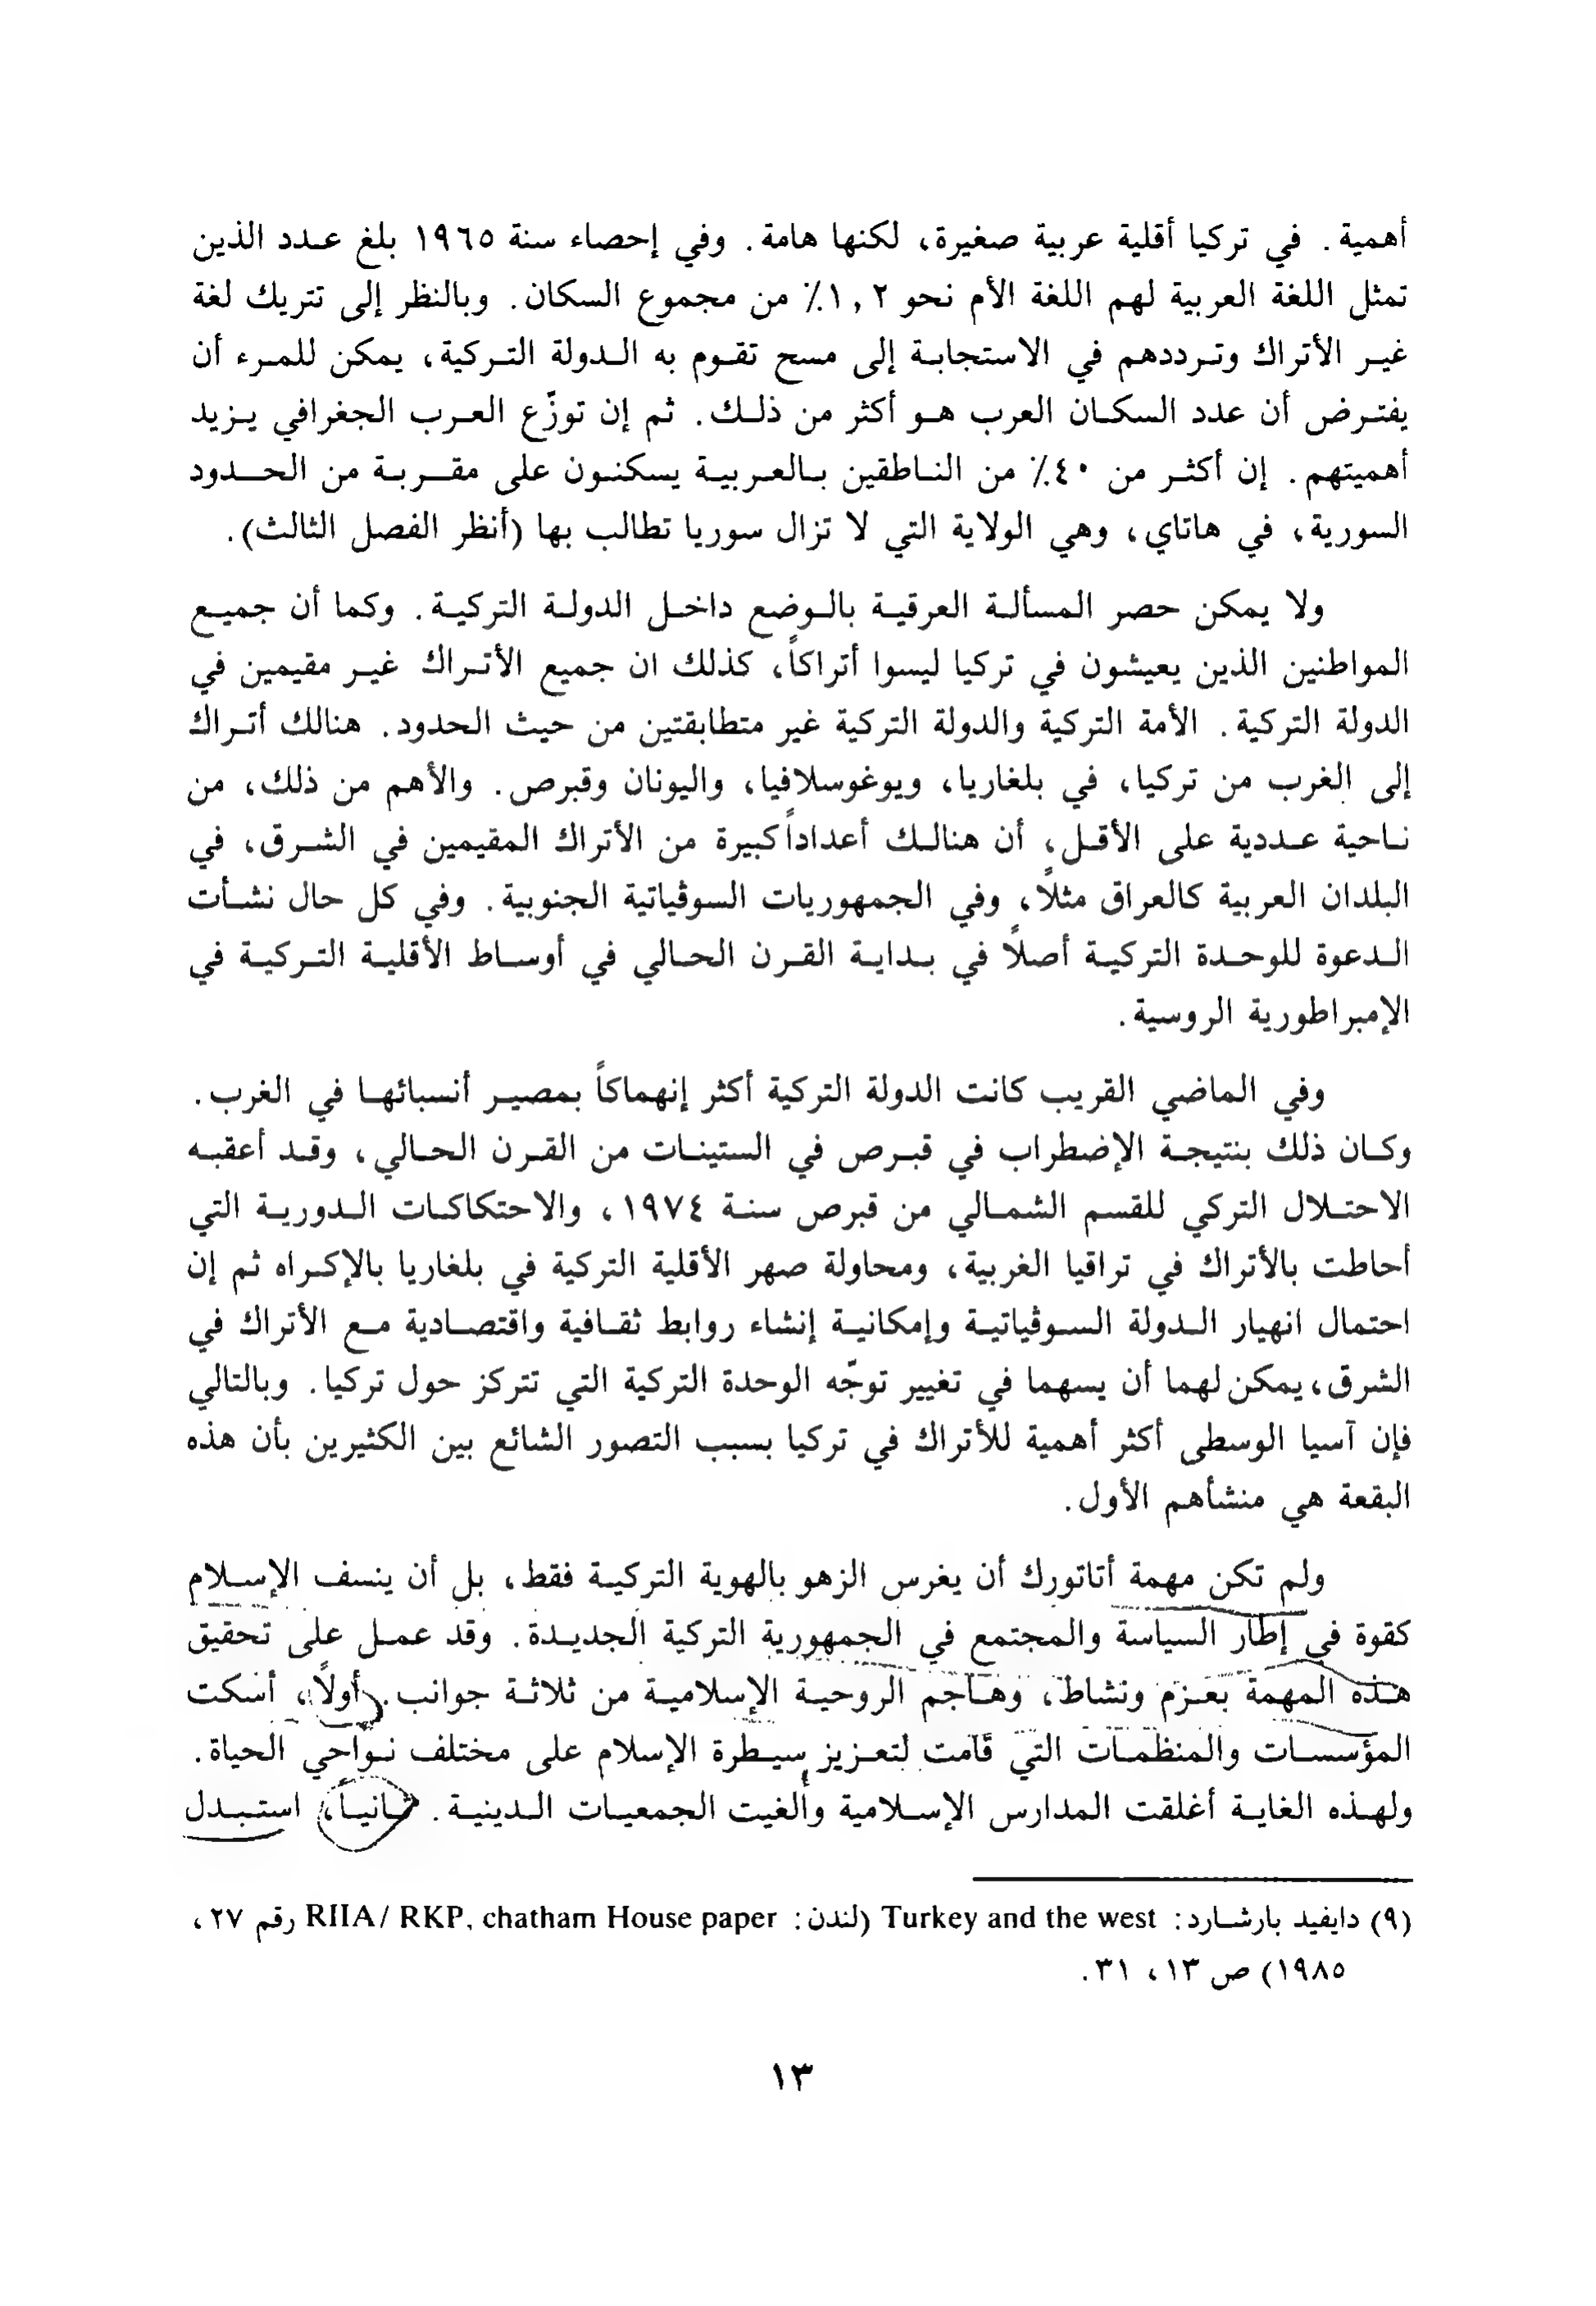 أهمية. في تركيا أقلية عربية صغيرة، لكنها هامة. وفي إحصاء سنة ١٩٦٥ بلغ عدد الذين
تمثل اللغة العربية لهم اللغة الأم نحو ١,٢٪ من مجموع السكان. وبالنظر إلى تتريك لغة
غير الأتراك وترددهم في الاستجابة إلى مسح تقوم به الدولة التركية، يمكن للمرء أن
يفترض أن عدد السكان العرب هو أكثر من ذلك. ثم إن توزّع العرب الجغرافي يزيد
أهميتهم. إن أكثر من ٤٠٪ من الناطقين بالعربية يسكنون على مقربة من الحدود
السورية، في هاتاي، وهي الولاية التي لا تزال سوريا تطالب بها (أنظر الفصل الثالث).
ولا يمكن حصر المسألة العرقية بالوضع داخل الدولة التركية. وكما أن جميع
المواطنين الذين يعيشون في تركيا ليسوا أتراكاً، كذلك ان جميع الأتراك غير مقيمين في
الدولة التركية. الأمة التركية والدولة التركية غير متطابقتين من حيث الحدود. هنالك أتراك
إلى الغرب من تركيا، في بلغاريا، ويوغوسلافيا، واليونان وقبرص. والأهم من ذلك، من
ناحية عددية على الأقل، أن هنالك أعداداً كبيرة من الأتراك المقيمين في الشرق، في
البلدان العربية كالعراق مثلاً، وفي الجمهوريات السوڤياتية الجنوبية. وفي كل حال نشأت
الدعوة للوحدة التركية أصلاً في بداية القرن الحالي في أوساط الأقلية التركية في
الإمبراطورية الروسية.
وفي الماضي القريب كانت الدولة التركية أكثر إنهماكاً بمصير أنسبائها في الغرب.
وكان ذلك بنتيجة الإضطراب في قبرص في الستينات من القرن الحالي، وقد أعقبه
الاحتلال التركي للقسم الشمالي من قبرص سنة ١٩٧٤، والاحتكاكات الدورية التي
أحاطت بالأتراك في تراقيا الغربية، ومحاولة صهر الأقلية التركية في بلغاريا بالإكراه ثم إن
احتمال انهيار الدولة السوڤياتية وإمكانية إنشاء روابط ثقافية واقتصادية مع الأتراك في
الشرق، يمكن لهما أن يسهما في تغيير توجّه الوحدة التركية التي تتركز حول تركيا. وبالتالي
فإن آسيا الوسطى أكثر أهمية للأتراك في تركيا بسبب التصور الشائع بين الكثيرين بأن هذه
البقعة هي منشأهم الأول.
ولم تكن مهمة أتاتورك أن يغرس الزهو بالهوية التركية فقط، بل أن ينسف الإسلام
كقوة في إطار السياسة والمجتمع في الجمهورية التركية الجديدة. وقد عمل على تحقيق
هذه المهمة بعزم ونشاط، وهاجم الروحية الإسلامية من ثلاثة جوانب. أولاً، أسكت
المؤسسات والمنظمات التي قامت لتعزيز سيطرة الإسلام على مختلف نواحي الحياة.
ولهذه الغاية أغلقت المدارس الإسلامية وألغيت الجمعيات الدينية. ثانياً، استبدل
(٩) دايفيد بارشارد: Turkey and the west (لندن: RIIA/ RKP, chatham House paper رقم ٢٧،
١٩٨٥) ص ١٣، ٣١.
١٣